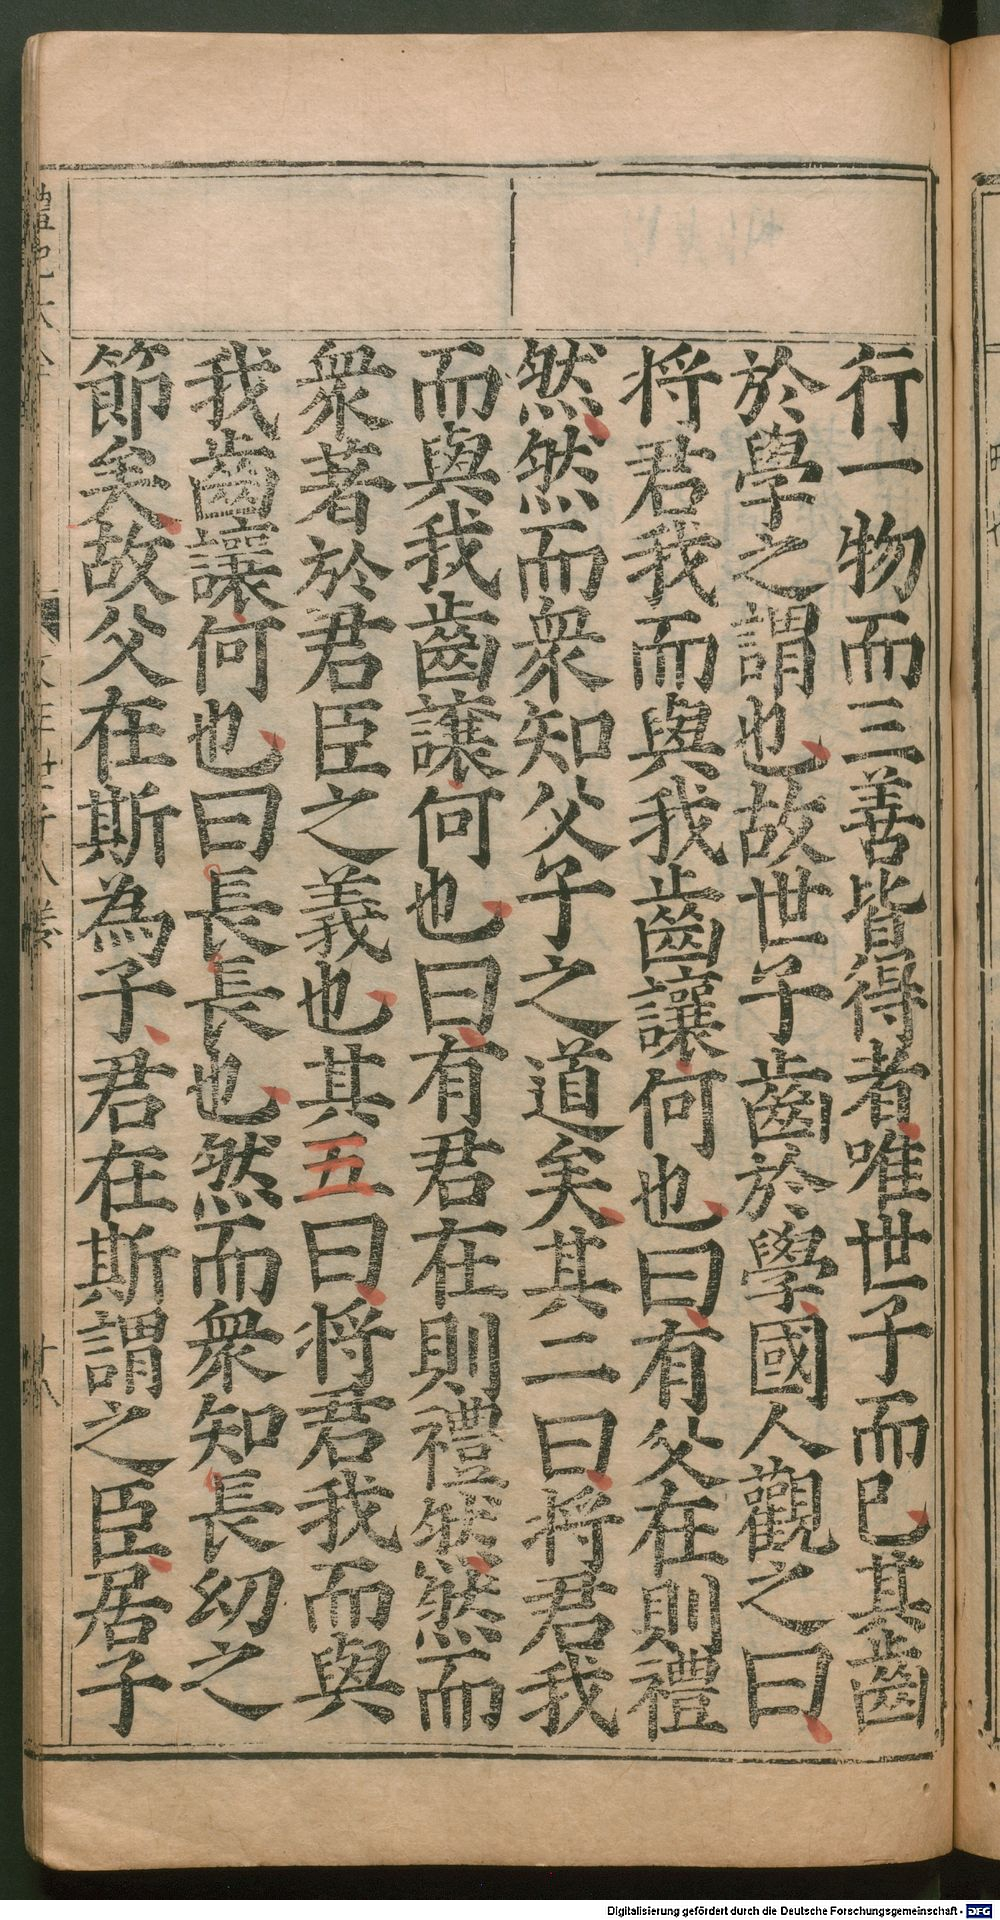 行一物而三善皆得者唯世子而已其齒
於學之謂也故世子齒於學國人觀之曰
将君我而與我齒讓何也曰有父在則禮
然然而衆知父子之道矣其二曰将君我
而與我齒讓何也曰有君在則禮然然而
衆著於君臣之義也其五曰将君我而與
我齒讓何也曰長長也然而衆知長幼之
節矣故父在斯為子君在斯謂之臣居子
禮記大全
文王世子八卷
十八
Digitalisierung gefördert durch die Deutsche Forschungsgemeinschaft - DFG